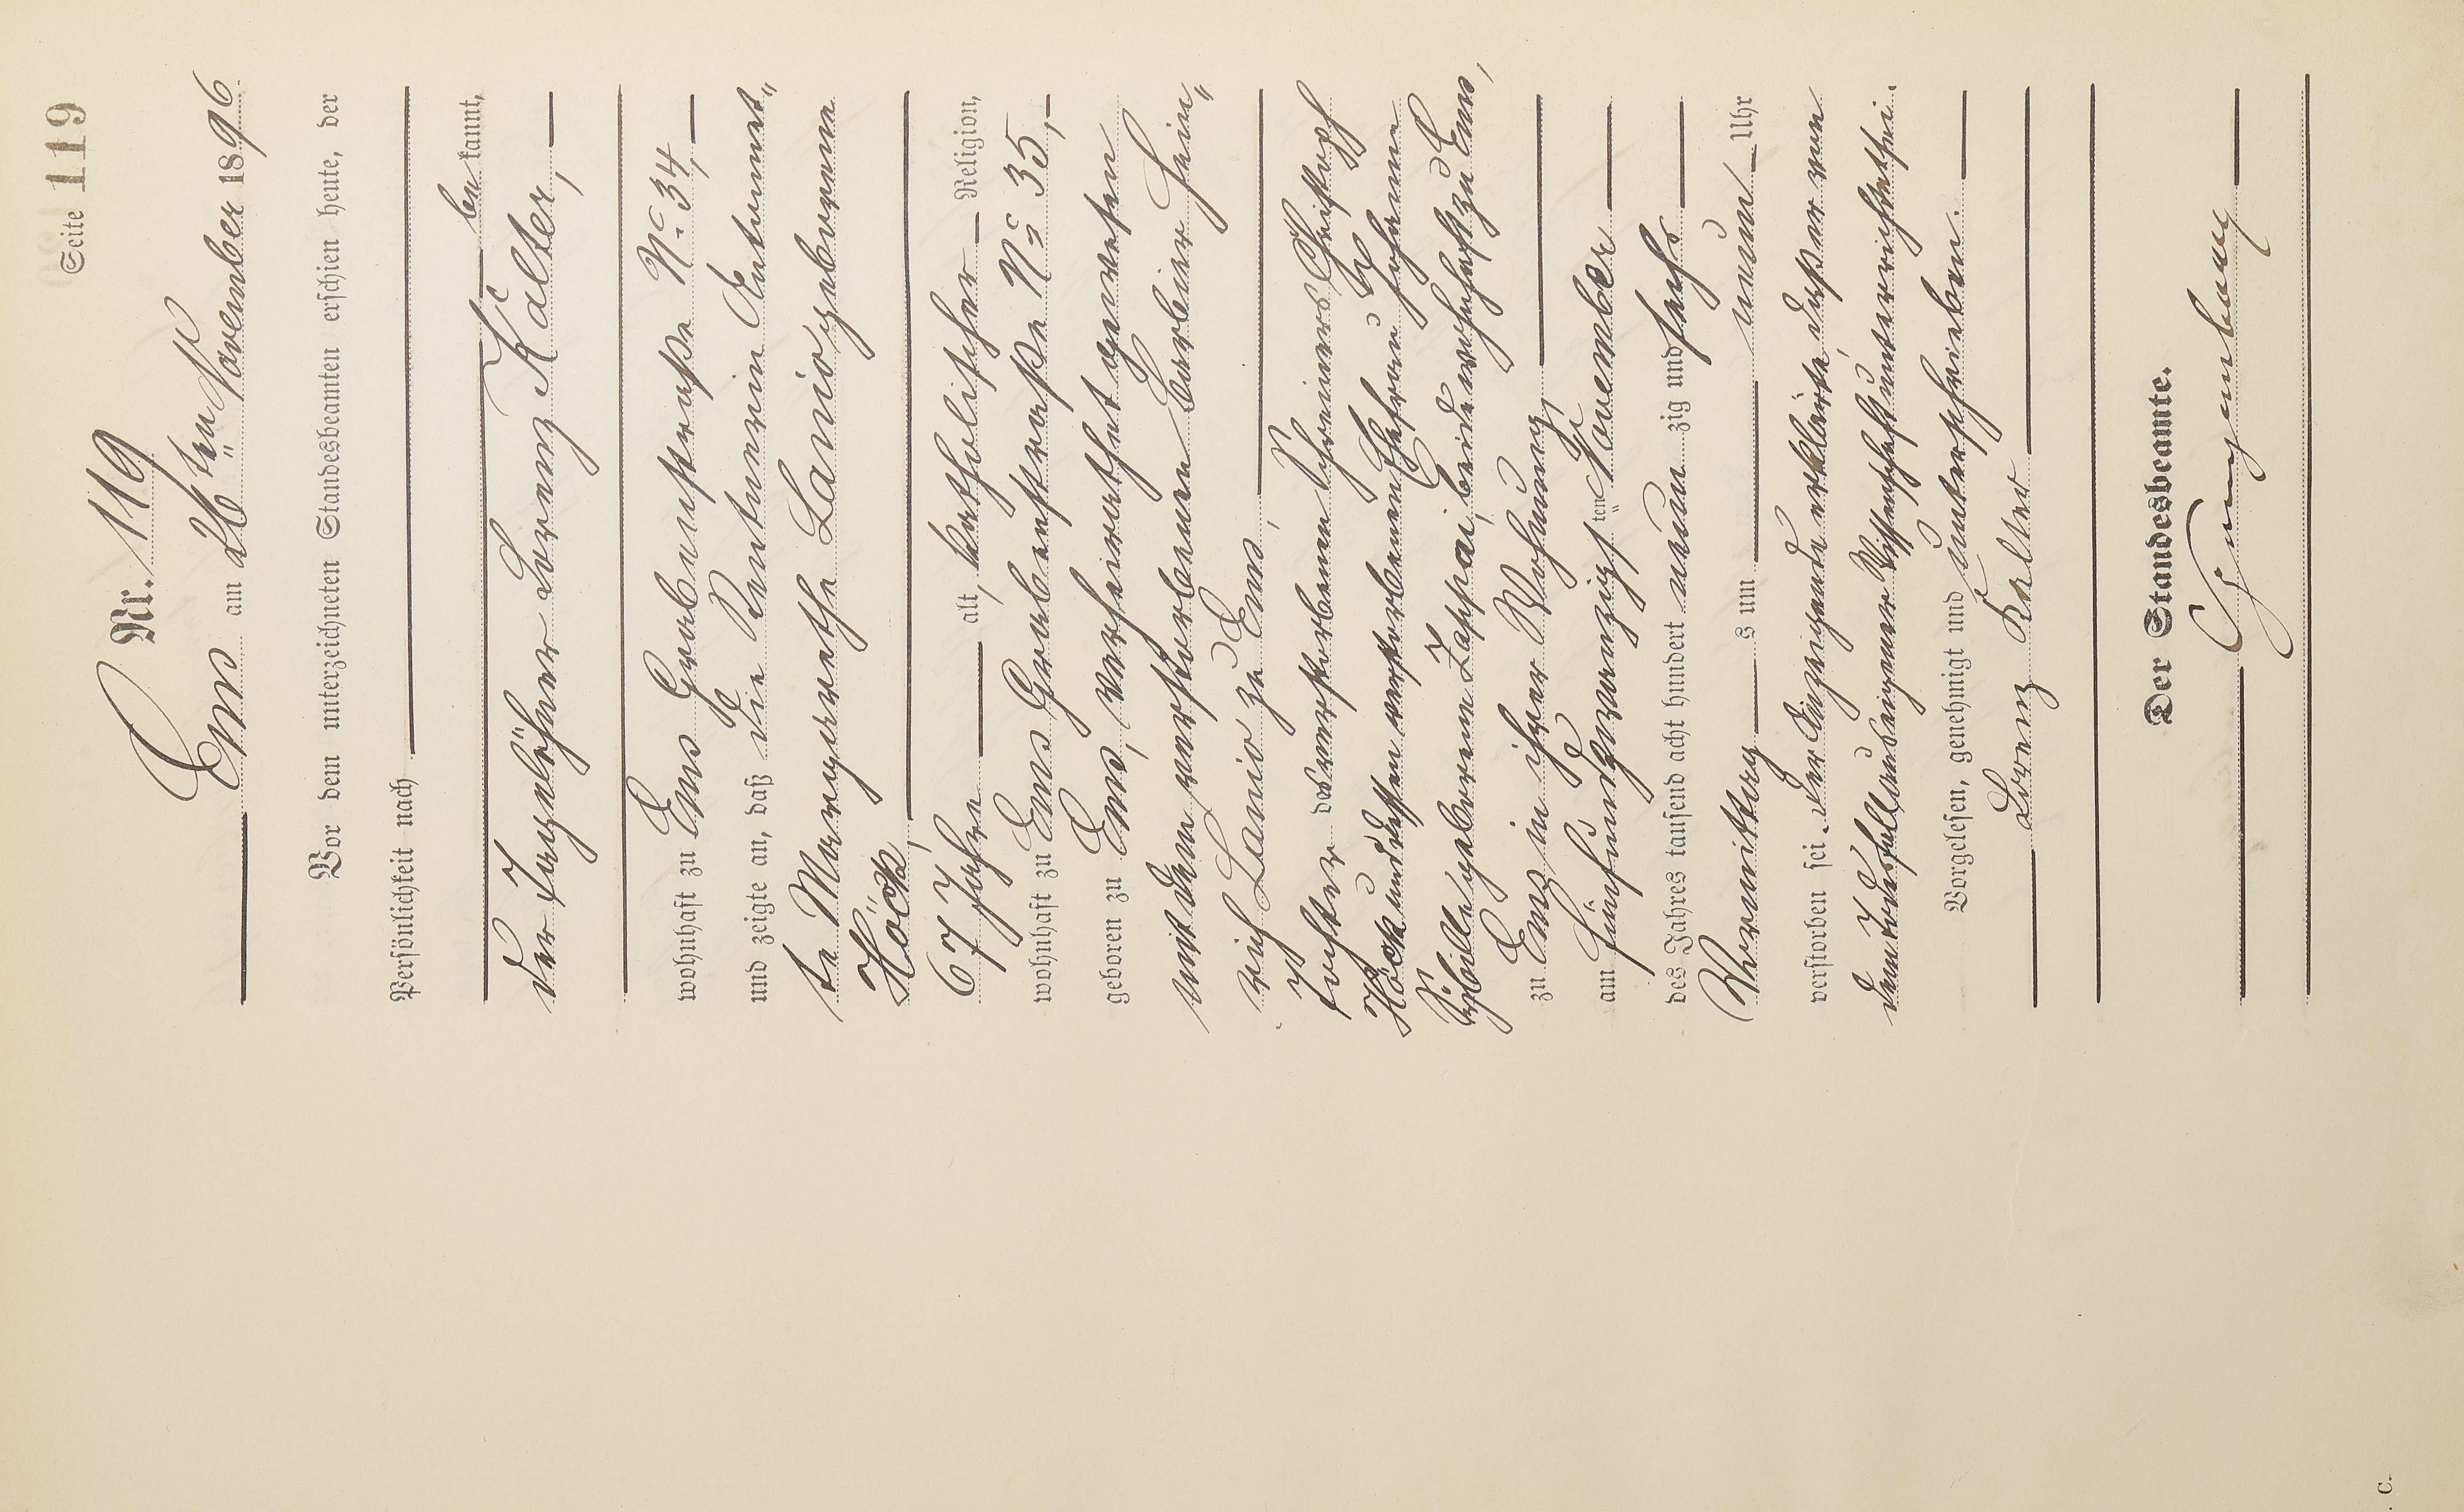 Seite 119
Nr. 119
Ems am 26ten November 1896
Vor dem unterzeichneten Standesbeamten erschien heute, der
Persönlichkeit nach
bekannt,
der Taglöhner Lorenz Kalter,
wohnhaft zu Ems Grabenstraße No 34,
und zeigte an, daß die Rentnerin Antonet„
ta Margaretha Lanio geborene
Höck,
67 Jahre alt, katholischer Religion,
wohnhaft zu Ems Grabenstraße No 35,
geboren zu Ems, verheirathet gewesen
mit dem verstorbenen Barbier Hein„
rich Lanio zu Ems,
Tochter des verstorbenen Schreiners Christoph
Höck und dessen verstorbenen Ehefrau Johanna
Sybilla geborenen Zappai, beide wohnhaft zu Ems,
zu Ems in ihrer Wohnung,
am fünfundzwanzigsten November
des Jahres tausend acht hundert neunzig und sechs
Vormittags um neun Uhr
verstorben sei. Der Anzeigende erklärte, daß er von
dem Todesfall aus eigener Wissenschaft unterrichtet sei.
Vorgelesen, genehmigt und unterschrieben.
Lorenz Kalter
Der Standesbeamte.
C.